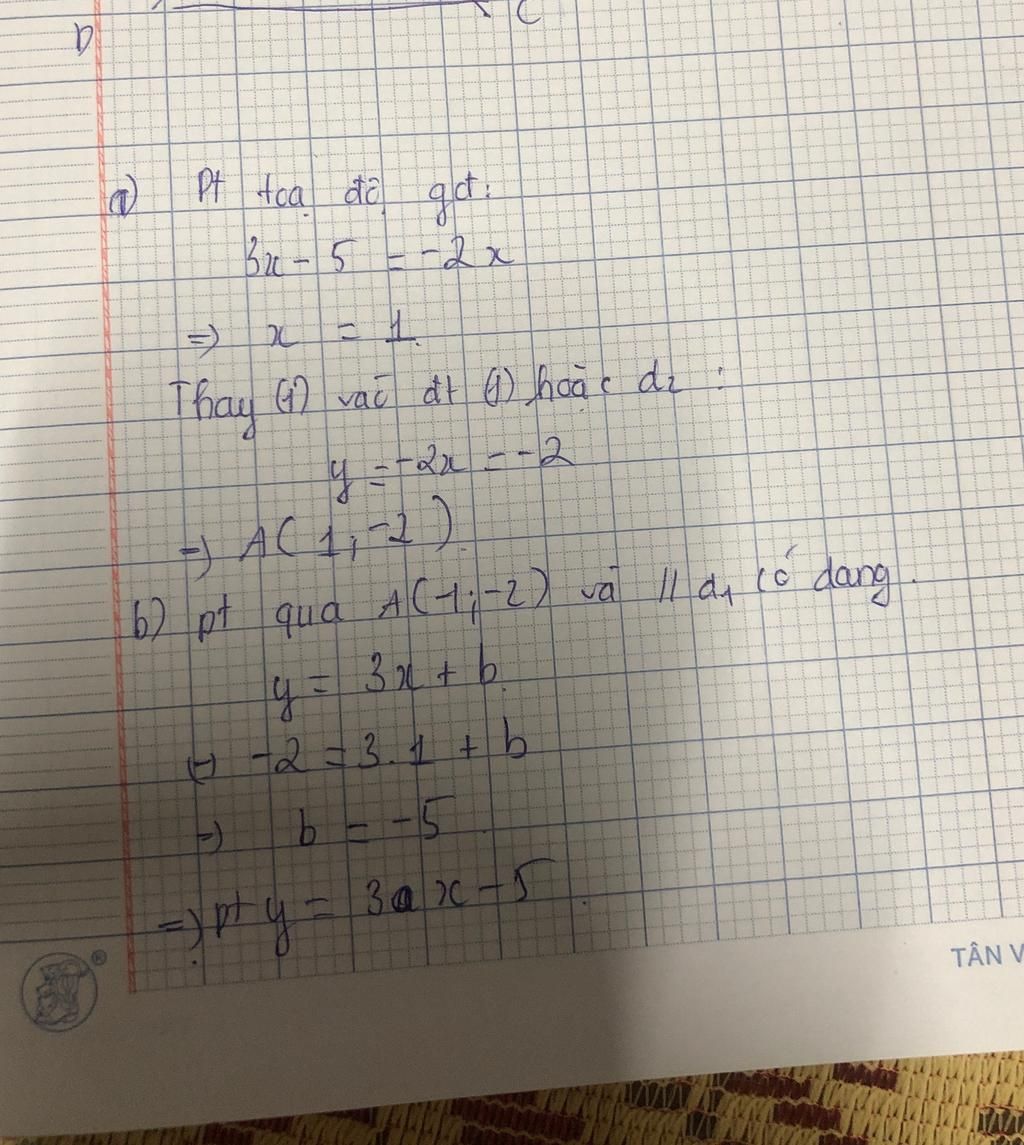 D C
a) Pt toạ độ gđ:
3x - 5 = -2x
=> x = 1.
Thay (1) vào đt (1) hoặc d2 :
y = -2x = -2
=> A(1; -2).
b) pt qua A(-1; -2) và // d1 có dạng.
y = 3x + b.
<=> -2 = 3.1 + b
=> b = -5
=> pt y = 3 x - 5.
®
TÂN V